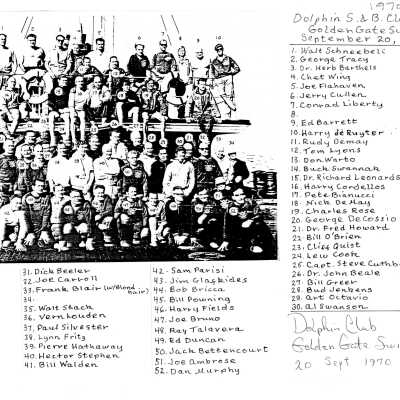 1970
Dolphin S. & B. Cl
Golden Gate Sw
September 20,
1. Walt Schneebeli
2. George Tracy
3. Dr. Herb Barthels
4. Chet Wing
5. Joe Flahaven
6. Jerry Cullen
7. Conrad Liberty
8.
9. Ed Barrett
10. Harry de Ruyter
11. Rudy Demay
12. Tom Lyons
13. Don Warto
14. Buck Swannak
15. Dr. Richard Leonards
16. Harry Cordellos
17. Pete Bianucci
18. Nick DeMay
19. Charles Rose
20. George DeCoszio
21. Dr. Fred Howard
22. Bill O'Brien
23. Cliff Quist
24. Lew Cook
25. Capt. Steve Cuthb
26. Dr. John Beale
27. Bill Greer
28. Bud Jenkens
29. Art Octavio
30. Al Swanson
31. Dick Beeler
32. Joe Carroll
33. Frank Blair (w/blond hair)
34.
35. Walt Stack
36. Vernhouden
37. Paul Silvester
38. Lynn Fritz
39. Pierre Hathaway
40. Hector Stephen
41. Bill Walden
42. Sam Parisi
43. Jim Glaskides
44. Bob Bricca
45. Bill Powning
46. Harry Fields
47. Joe Bruno
48. Ray Talavera
49. Ed Duncan
50. Jack Bettencourt
51. Joe Ambrose
52. Dan Murphy
Dolphin Club
Golden Gate Swi
20 Sept 1970